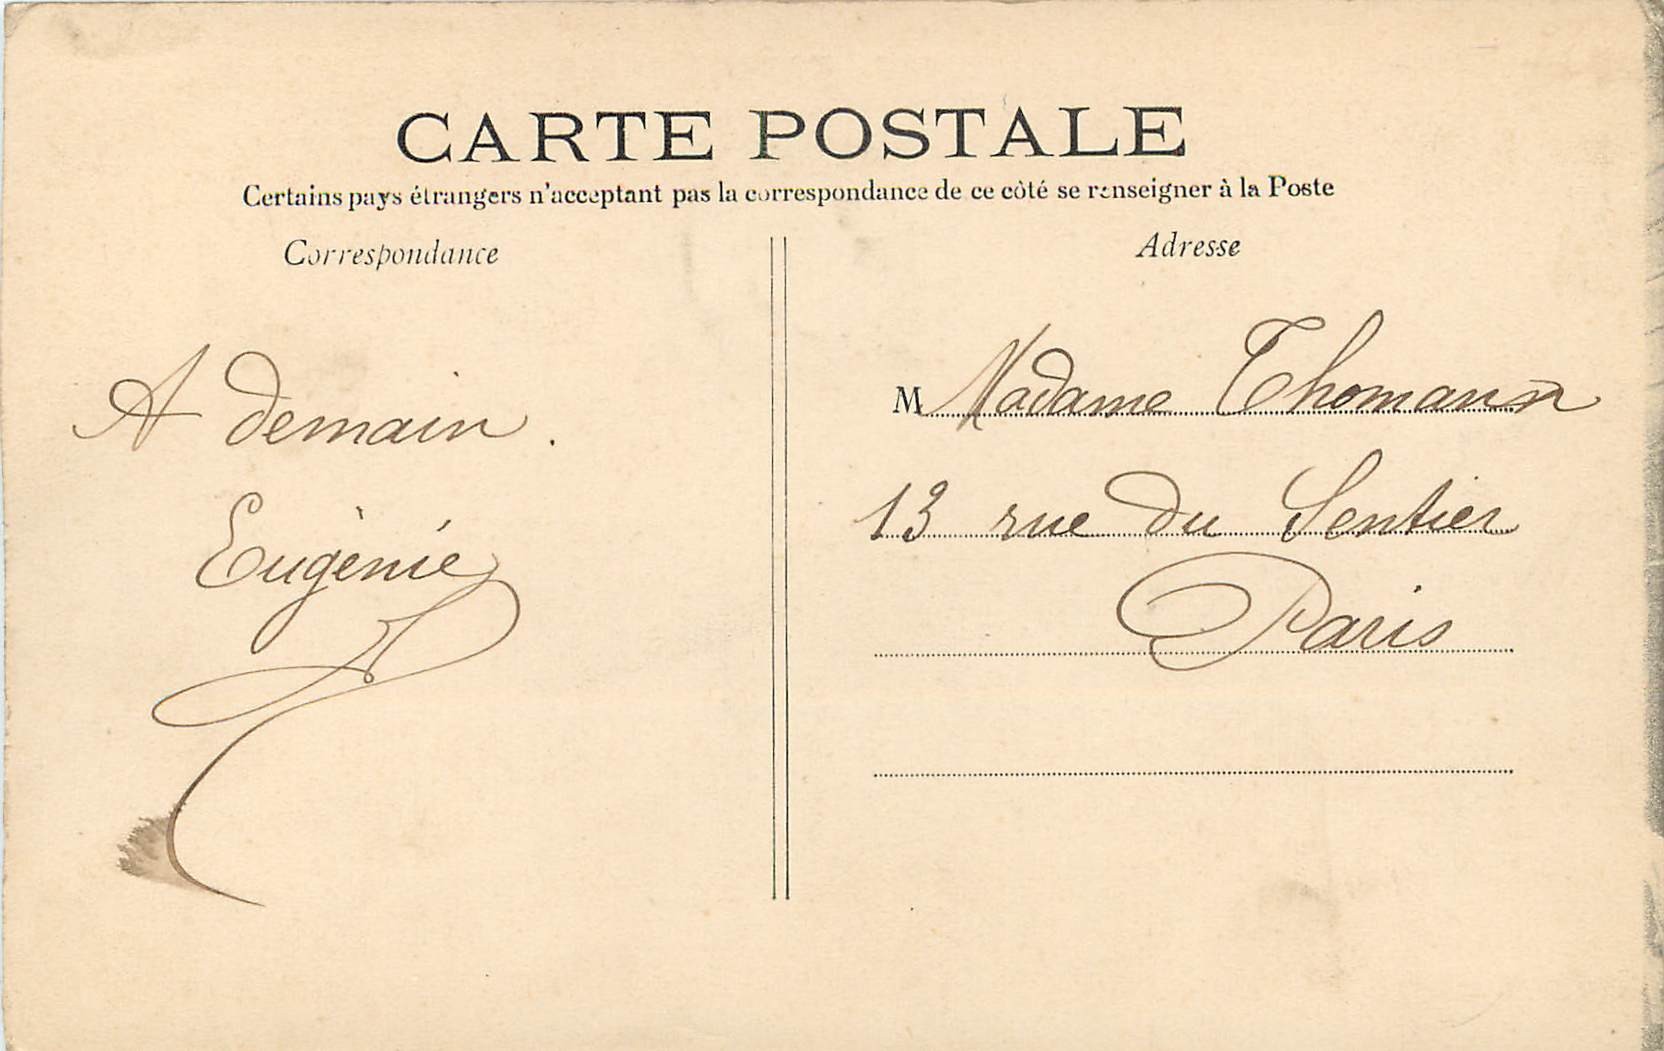 CARTE POSTALE
Certains pays étrangers n'acceptant pas la correspondance de ce côté se renseigner à la Poste
Correspondance
A demain.
Eugènie
Adresse
M Madame Thomann
13 rue du Sentier
Paris